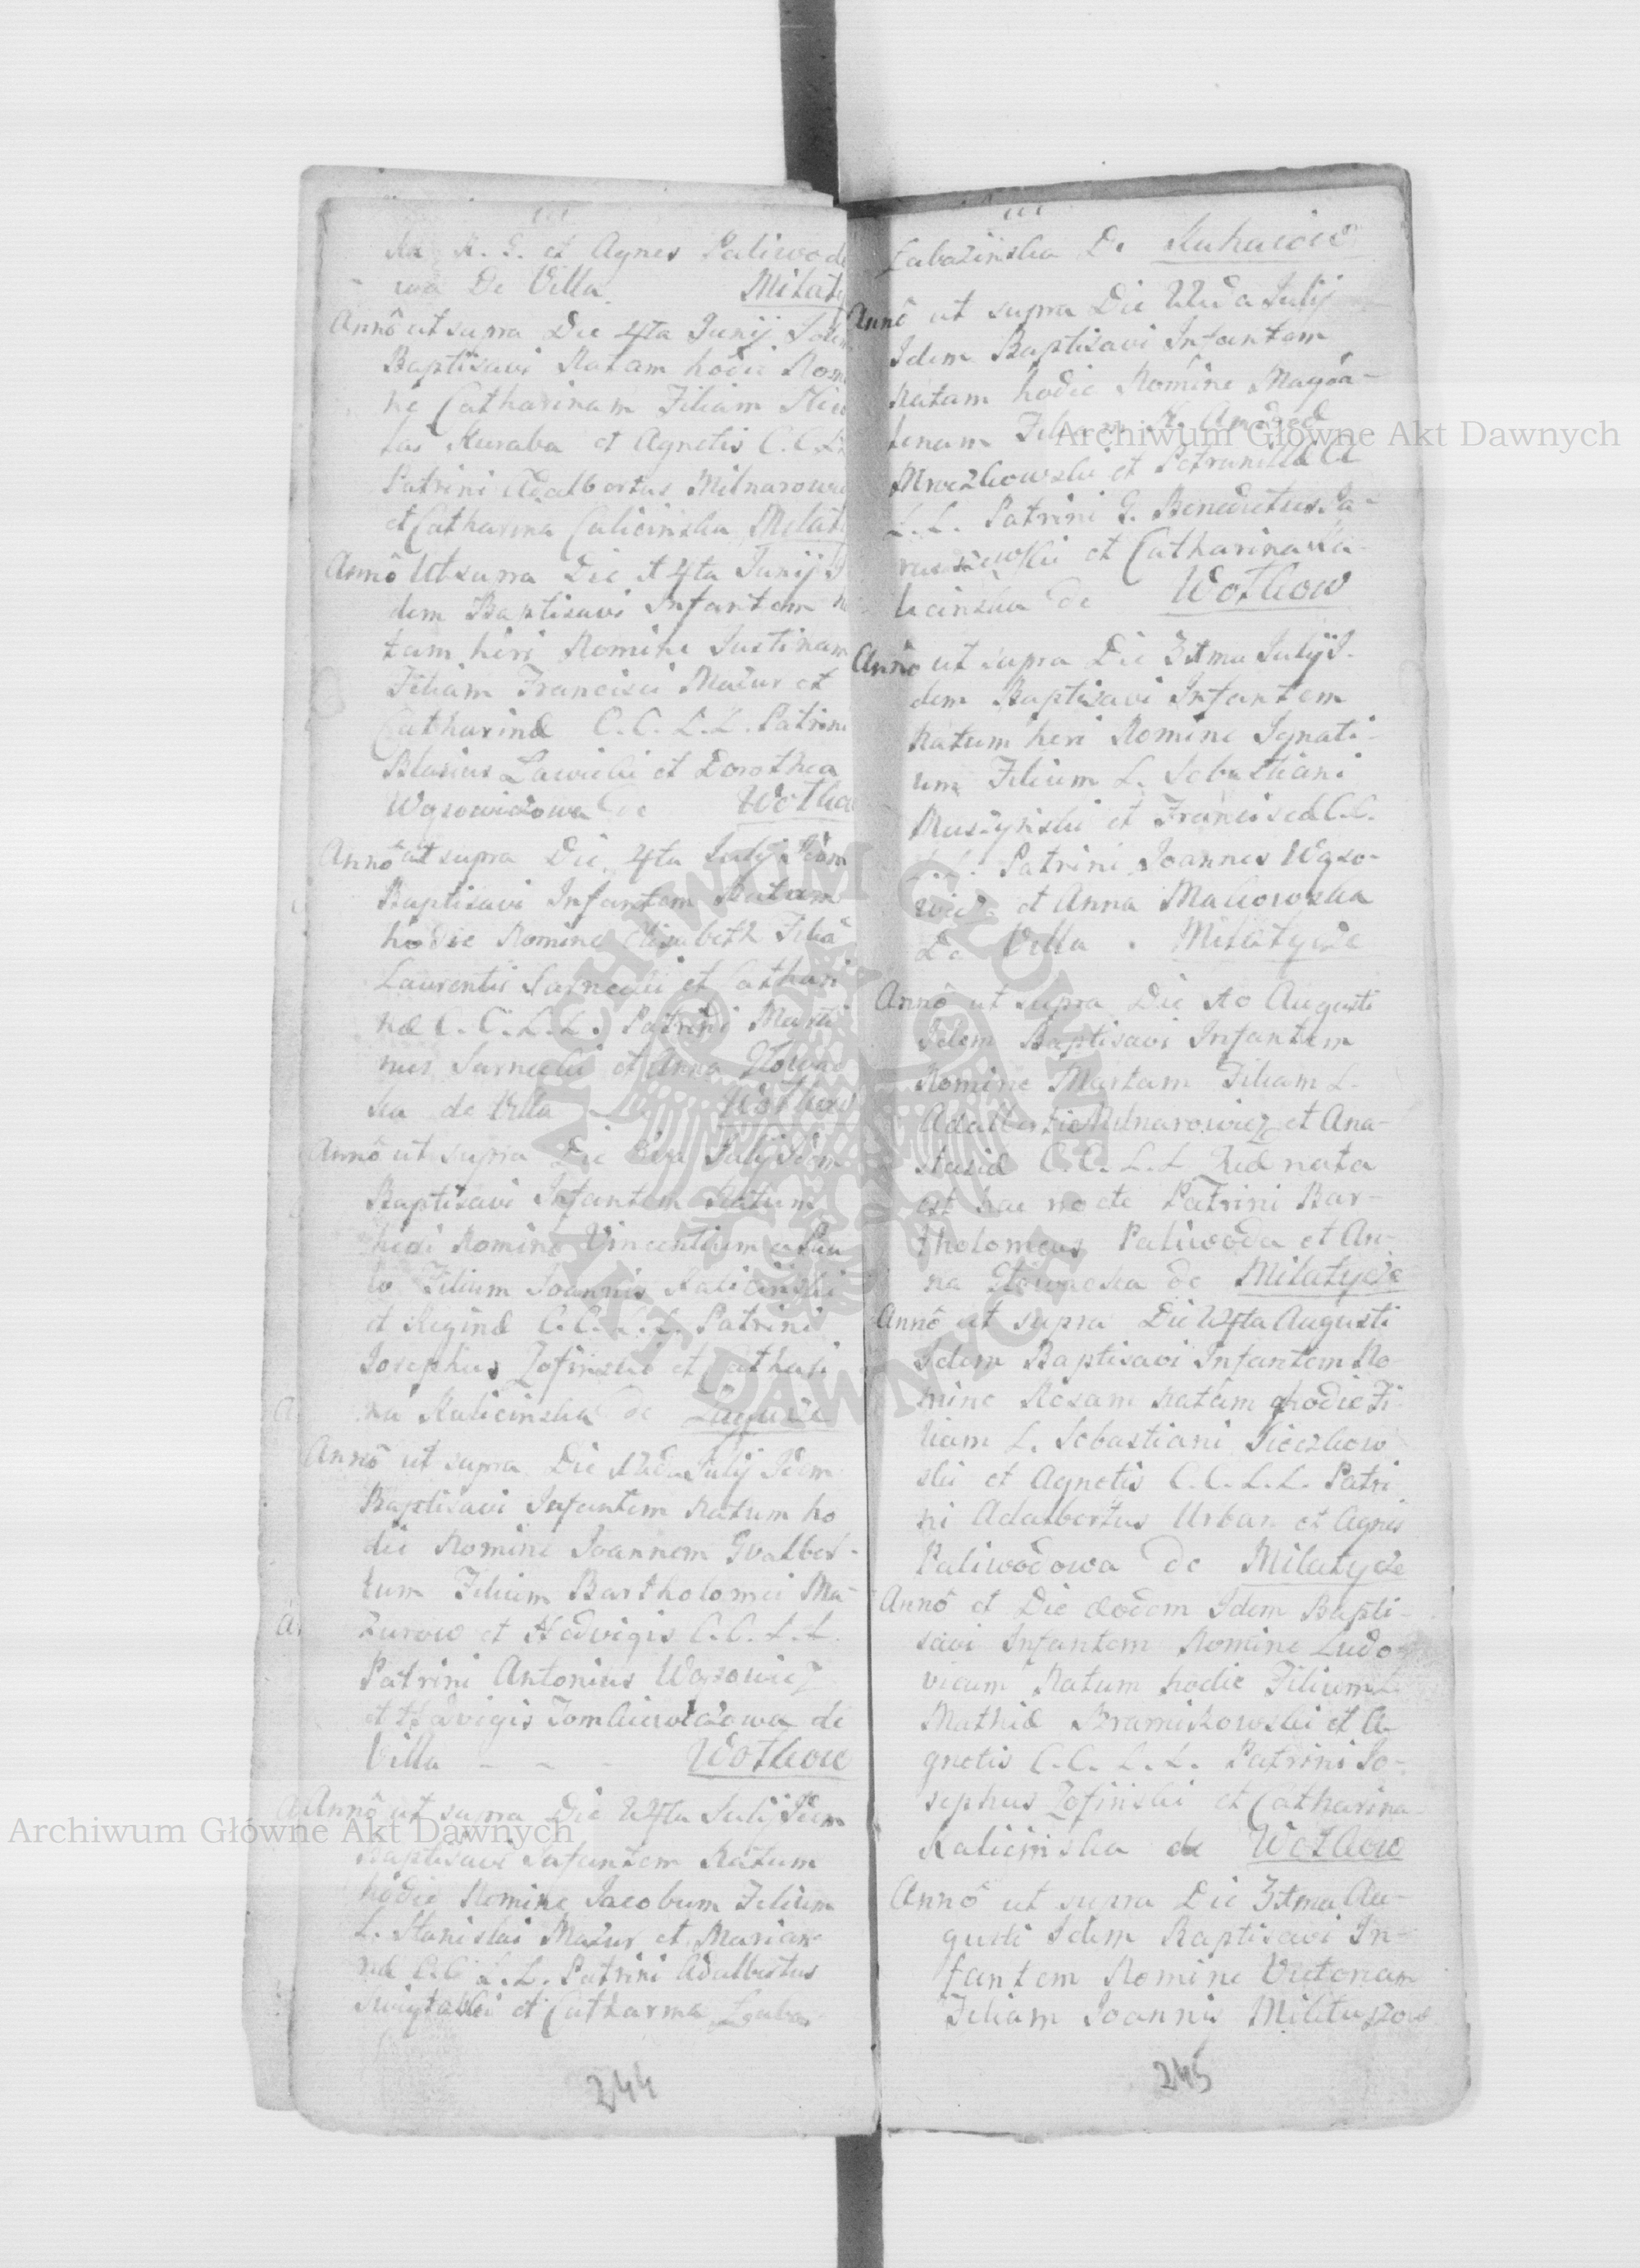 ka K. G. et Agnes Paliwodo
wa De Villa Milaty
Annô ut supra Die 4ta Junij Idem
Baptisavi Natam hodie Nom
ne Catharinam Filiam
Kuraba et Agnetis C.C.L.
Patrini Adalbertus Milnarowi
et Catharina Calicinska Milat
Annô Ut supra Die 4ta Junij
dem Baptisavi Infantem
tam heri Nomine Justinam
Filiam Francisci Mazur et
Catharinæ C.C.L.L. Patrini
Blasius Lawicki et Dorothea
Wąsowiczowa De Wotko
Annô ut supra Die 4ta Julij Idem
Baptisavi Infantem Natam
hodie Nomine Elisabeth Filiā
Laurentii Sarnecki et Cathari
næ C.C.L.L. Patrini Marti
nus Sarnecki et Anna Głowac
ka de Villa Wotkow
Annô ut supra Die Julij Idem
Baptisavi Infantem Natum
Nomine Vincentium a Pau
lo Filium Joannis Kalicinski
et Reginæ C.C.L.L. Patrini
Josephus Zofinski et Cathari
na Kalicinska de
Annô ut supra Die 12da Julij Idem
Baptisavi Infantem Natum ho
die Nomine Joannem Gvalber-
tum Filium Bartholomei Ma-
zurow et Hedvigis C.C.L.L.
Patrini Antonius Wąsowicz
et Hedvigis Tomkiewiczowa de
Villa - - - Wotkow
Annô ut supra Die 24ta Julij Idem
Baptisavi Infantem Natum
hodie Nomine Jacobum Filium
L. Stanislai Mazur et Marian
næ C.C.L.L. Patrini Adalbertus
Swiętalski et Catharina Łaba
244
Łabazinska De
Annô ut supra Die Julij
Idem Baptisavi Infantem
Natam hodie Nomine Magda-
lenam Filiam
Mroczkowski et Petronillæ C
L.L. Patrini G. Benedictus
et Catharina Ka-
licinska de Wotkow
Annô ut supra Die 31ma Julij I-
dem Baptisavi Infantem
Natum heri Nomine Ignati-
um Filium L. Sebastiani
Ruszynski et Franciscæ C.C.
L.L. Patrini Joannes Wąso-
wicz et Anna Malkowska
De Villa . Milatycze
Annô ut supra Die Augusti
Idem Baptisavi Infantem
Nomine Martam Filiam L.
Adalberti Milnarowicz et Ana-
stasiæ C.C.L.L. Quæ nata
est hac nocte Patrini Bar-
tholomeus Paliwoda et An-
na Głowacka de Milatycze
Annô ut supra Die 24ta Augusti
Idem Baptisavi Infantem No-
mine Rosam Natam hodie Fi-
liam L. Sebastiani
ski et Agnetis C.C.L.L. Patri
ni Adalbertus Urban et Agnes
Paliwodowa de Milatycze
Annô et Die eodem Idem Bapti-
savi Infantem Nomine Ludo-
vicum Natum hodie Filium L.
Mathiæ et A-
gnetis C.C.L.L. Patrini Jo-
sephus Zofinski et Catharina
Kalicinska de Wotkow
Annô ut supra Die 31ma Au-
gusti Idem Baptisavi In-
fantem Nomine Victoriam
Filiam Joannis
245
Archiwum Główne Akt Dawnych
Archiwum Główne Akt Dawnych
ARCHIWUM GŁÓWNE AKT DAWNYCH